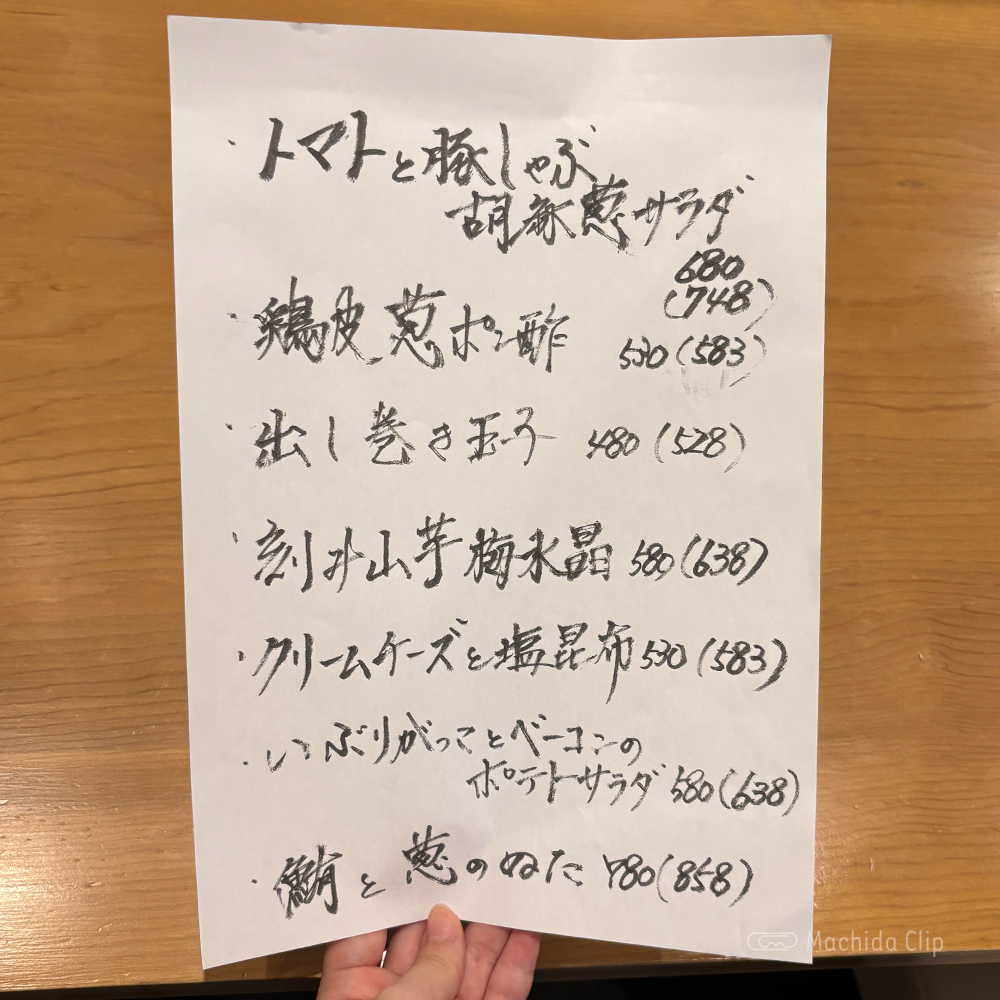 ・トマトと豚しゃぶ
胡麻葱サラダ
680
(748)
・鶏皮葱ポン酢 530(583)
・出し巻き玉子 480(528)
・刻み山芋梅水晶 580(638)
・クリームチーズと塩昆布 530(583)
・いぶりがっことベーコンの
ポテトサラダ 580(638)
・鮪と葱のぬた 780(858)
Machida Clip